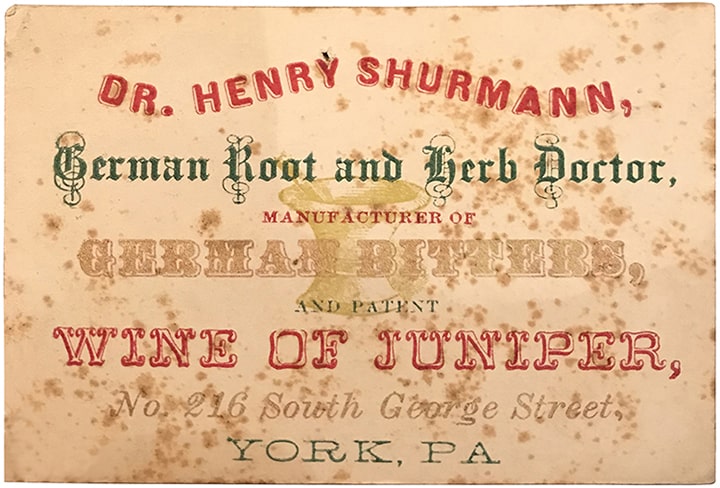 DR. HENRY SHURMANN,
German Root and Herb Doctor,
MANUFACTURER OF
GERMAN BITTERS,
AND PATENT
WINE OF JUNIPER,
No. 216 South George Street,
YORK, PA